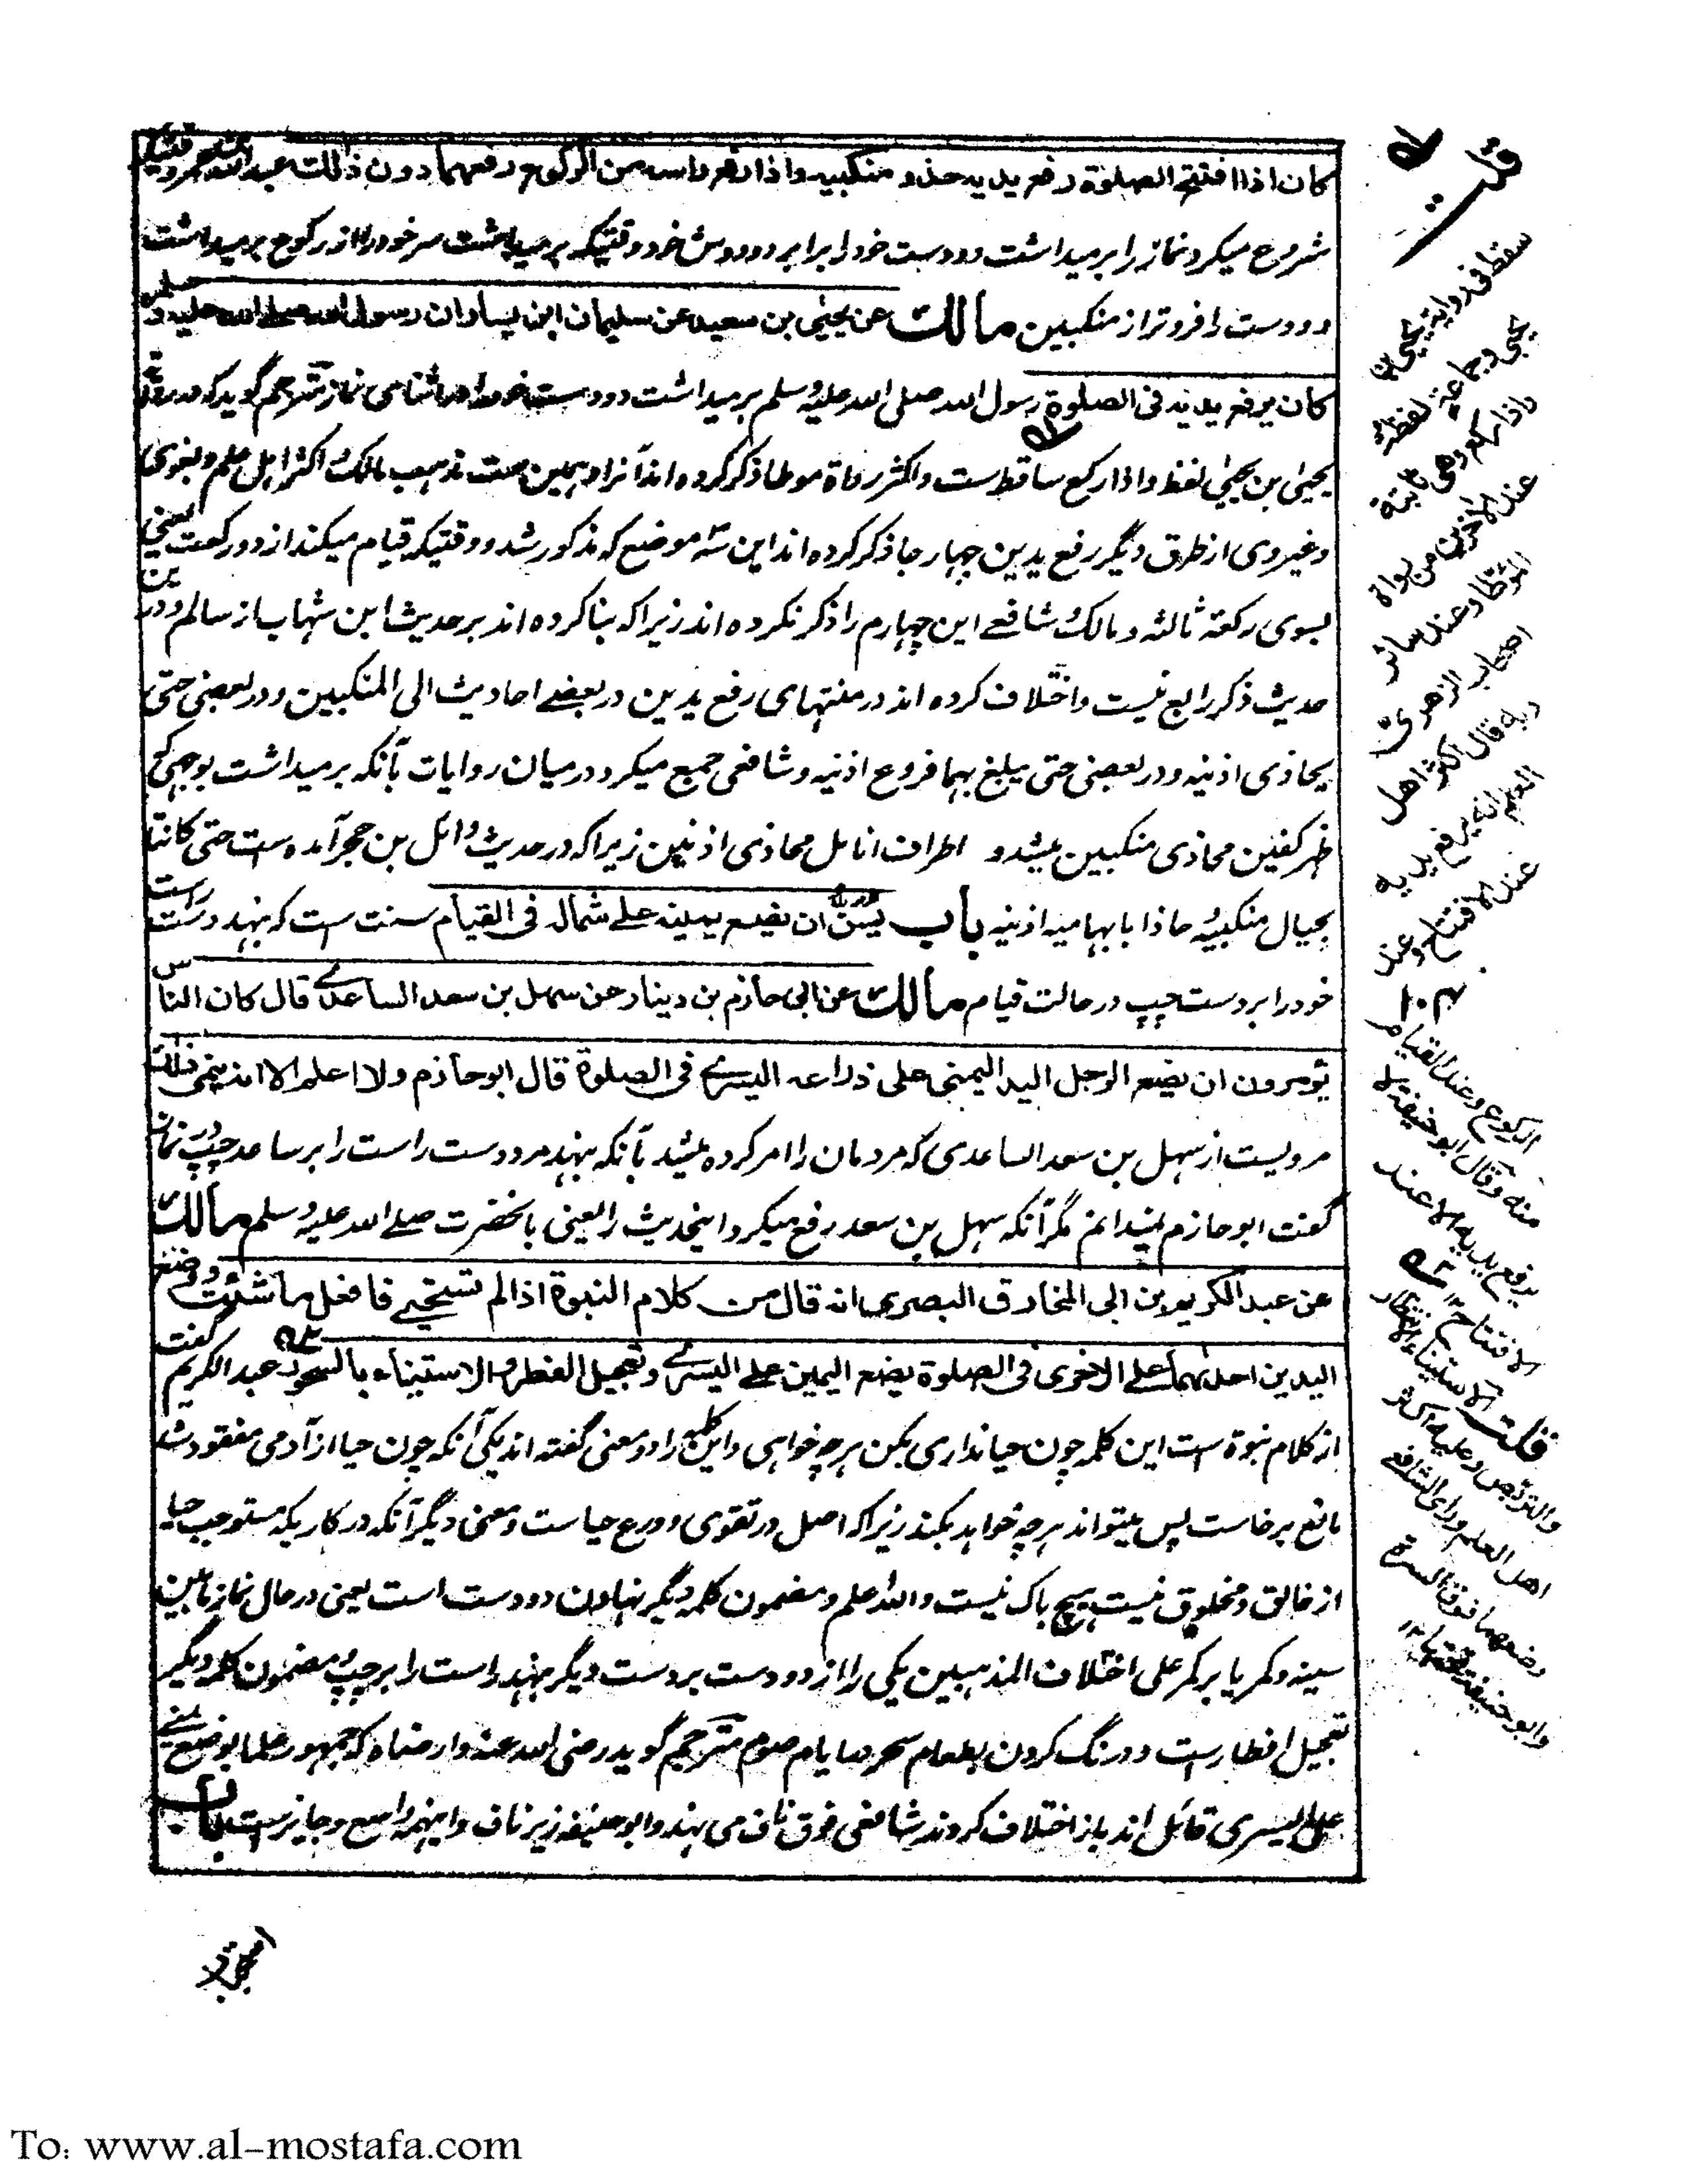 كان اذا افتتح الصلوة رفع يديه حذو منكبيه واذا رفع راسه من الركوع رفعهما دون ذلك عبدالله بن عمر وقتيكه
شروع ميكرد نماز را برميداشت دو دست خود را برابر دو دوش خود و وقتيكه برميداشت سر خود را از ركوع برميداشت
دو دست را فروتر از منكبين مالك عن يحيى بن سعيد عن سليمان ابن يسار ان رسول الله صلى الله عليه وسلم
كان يرفع يديه فى الصلوة رسول الله صلى الله عليه وسلم برميداشت دو دست خود را در اثناى نماز مترجم گويد كه در روايت
يحيى بن يحيى لفظ واذا ركع ساقط ست واكثر رواة موطا ذكر كرده اند آنرا و همين ست مذهب مالك و اكثر اهل علم و بغوى
وغير وى از طرق ديگر رفع يدين چهار جا ذكر كرده اند اين سه موضع كه مذكور شد و وقتيكه قيام ميكند از دو ركعت يعنى
بسوى ركعة ثالثه و مالك و شافعے اين چهارم را ذكر نكرده اند زيراكه بنا كرده اند بر حديث ابن شهاب از سالم و درين
حديث ذكر رابع نيست واختلاف كرده اند در منتهاى رفع يدين در بعضے احاديث الى المنكبين و در بعضى حتى
يحاذى اذنيه و در بعضى حتى يبلغ بهما فروع اذنيه و شافعى جمع ميكرد درميان روايات بآنكه برميداشت بوجهى كه
ظهر كفين محاذى منكبين ميشد و اطراف انامل محاذى اذنين زيراكه در حديث وائل بن حجر آمده ست حتى كانتا
بحيال منكبيه و حاذا بابهاميه اذنيه باب يسن ان يضع يمينه على شماله فى القيام سنت ست كه بنهد دست راست
خود را بر دست چپ در حالت قيام مالك عن ابى حازم بن دينار عن سهل بن سعد الساعدے قال كان الناس
يومرون ان يضع الرجل اليد اليمنى على ذراعه اليسرے فى الصلوة قال ابوحازم ولا اعلم الا انه ينمى ذلك
مرويست از سهل بن سعد الساعدى كه مردمان را امر كرده ميشد بآنكه بنهد مرد دست راست را بر ساعد چپ در نماز
گفت ابوحازم نميدانم مگر آنكه سهل بن سعد رفع ميكرد اينحديث را يعنى بآنحضرت صلے الله عليه وسلم مالك
عن عبد الكريم بن ابى المخارق البصرى انه قال من كلام النبوة اذا لم تستحيے فافعل ما شئت و وضع
اليدين احدهما على الاخرى فى الصلوة يضع اليمين على اليسرے وتعجيل الفطر والاستيناء بالسحور گفت عبد الكريم
از كلام نبوة ست اين كلمه چون حيا ندارى بكن هرچه خواهى و اين كلمه را دو معنى گفته اند يكى آنكه چون حيا از آدمى مفقود شد
مانع برخاست پس ميتواند هرچه خواهد بكند زيراكه اصل در تقوى و ورع حياست و معنى ديگر آنكه در كاريكه مستوجب حيا
از خالق و مخلوق نيست هيچ باك نيست والله اعلم و مضمون كلمه ديگر نهادن دو دست است يعنى در حال نماز مابين
سينه و كمر يا بر كمر على اختلاف المذهبين يكى را از دو دست بر دست ديگر بنهد راست را بر چپ و مضمون كلمه ديگر
تعجيل افطارست و درنگ كردن بطعام سحر در ايام صوم مترجم گويد رضى الله عنه وارضاه كه جمهور علما بوضع يمنے
على اليسرى قائل اند باز اختلاف كردند شافعى فوق ناف مى نهد و ابوحنيفه زير ناف و اينهمه واسع و جايزست باب
قلت
سقط فى رواية يحيى بن
يحيى وجماعة لفظة
واذا ركع وهى ثابتة
عند الآخرين من رواة
الموطا وعند سائر
اصحاب الزهرى
وبه قال اكثر اهل
العلم انه يرفع يديه
عند الافتتاح وعند
الركوع وعند القيام
منه وقال ابوحنيفة لا
يرفع يديه الا عند
الافتتاح ١٢
الاستيناء الانتظار
قلت
والتربص وعليه اكثر
اهل العلم وراى الشافعے
وضعهما فوق السرة
وابوحنيفة تحتها ١٢
To: www.al-mostafa.com